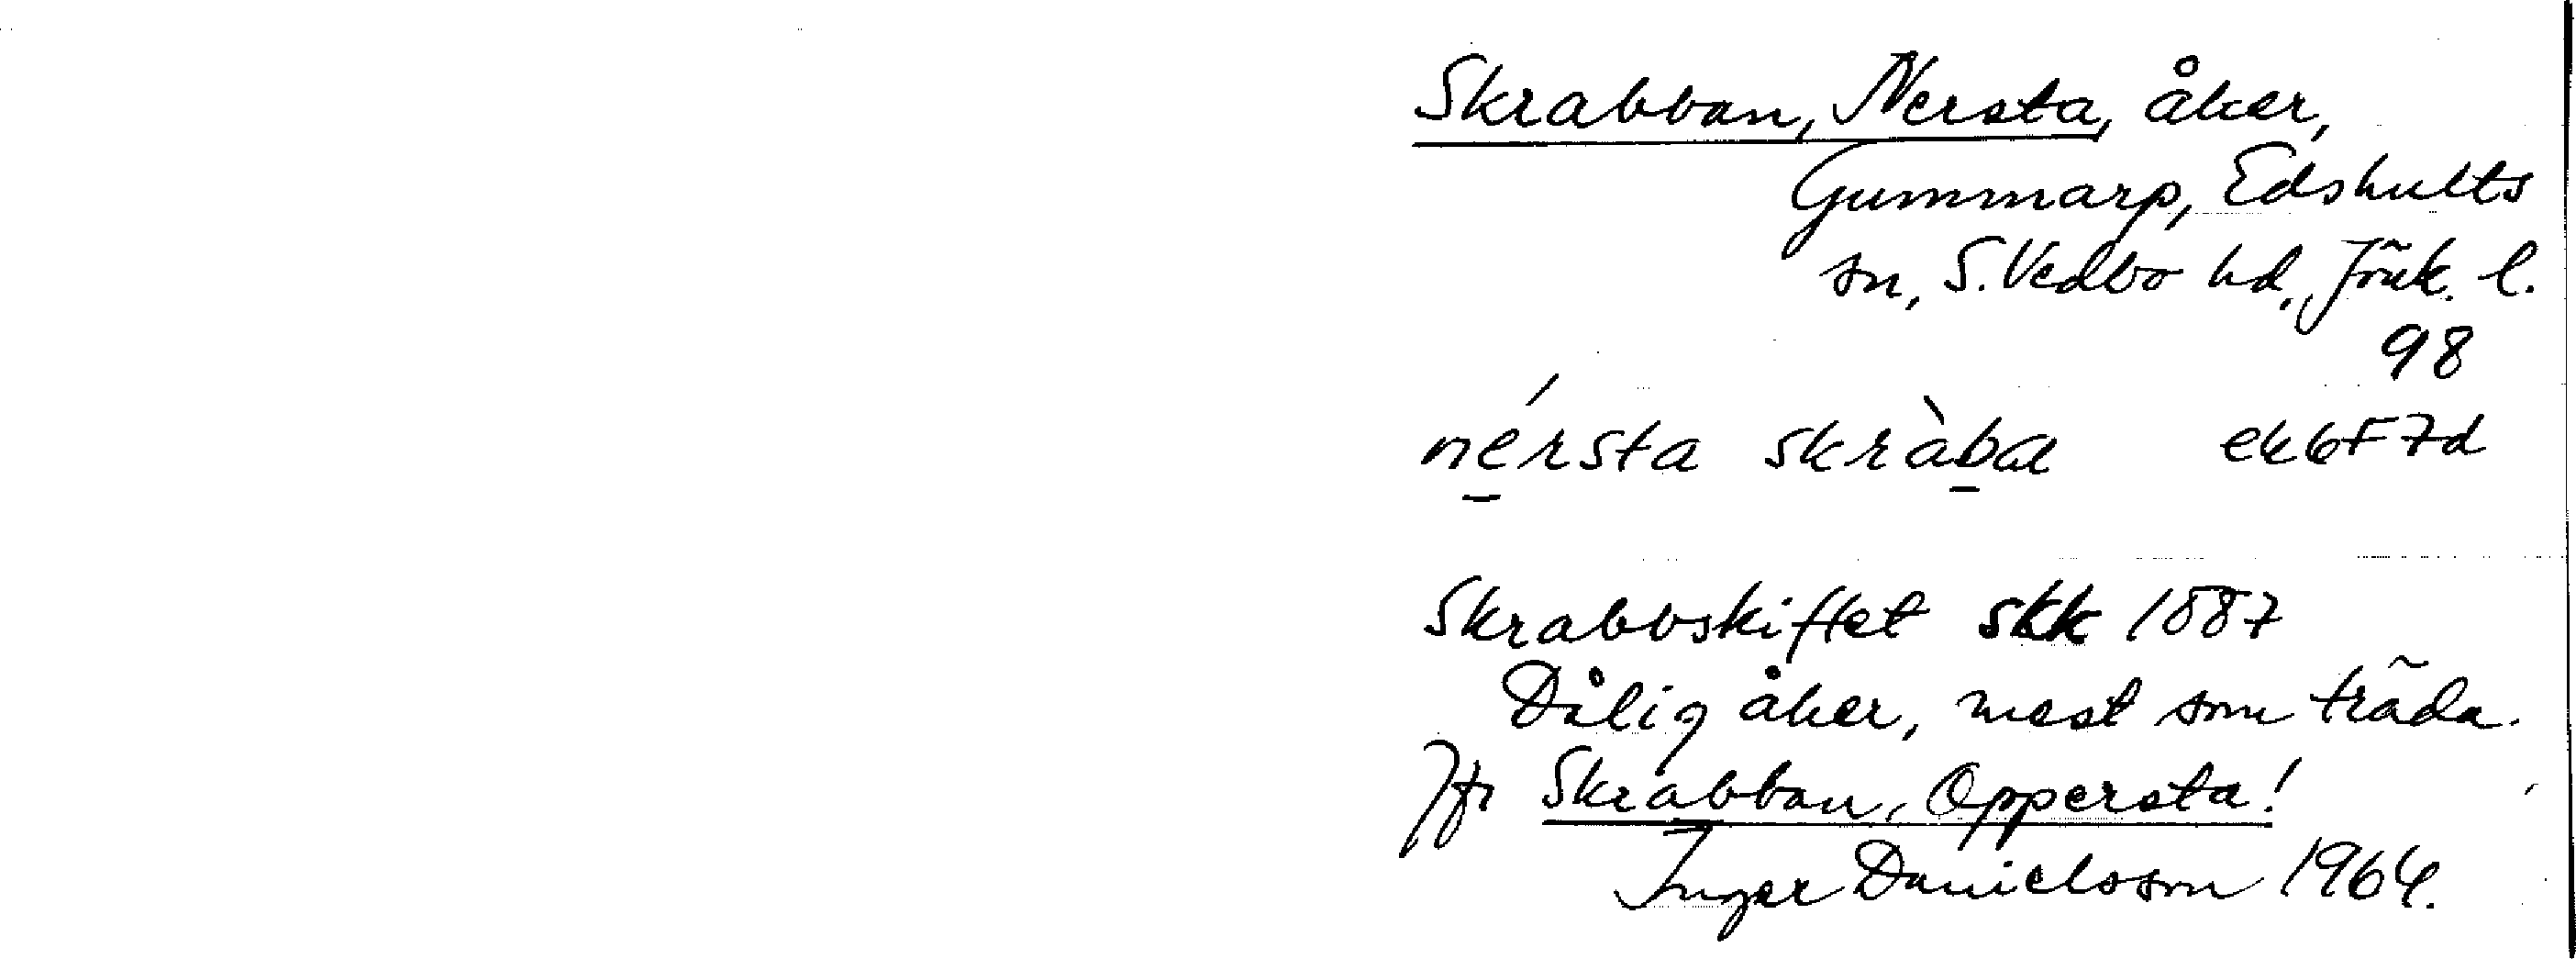 Skrabban, Nersta, åker,
Gummarp, Edshults
sn, S. Vedbo hd, Jönk. l.
98
nérsta skràba ek 6F7d
Skrabbskiftet skk 1887
Dålig åker, mest som träda.
Jfr Skrabban, Oppersta!
Inger Danielsson 1964.